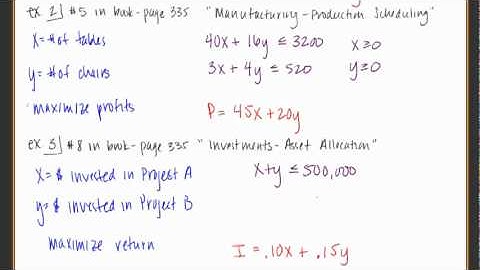 ex 2] #5 in book - page 335 "Manufacturing - Production Scheduling"
x = # of tables 40x + 16y ≤ 3200 x ≥ 0
y = # of chairs 3x + 4y ≤ 520 y ≥ 0
maximize profits P = 45x + 20y
ex 3] #8 in book - page 335 "Investments - Asset Allocation"
x = $ invested in Project A x + y ≤ 500,000
y = $ invested in Project B
maximize return I = .10x + .15y